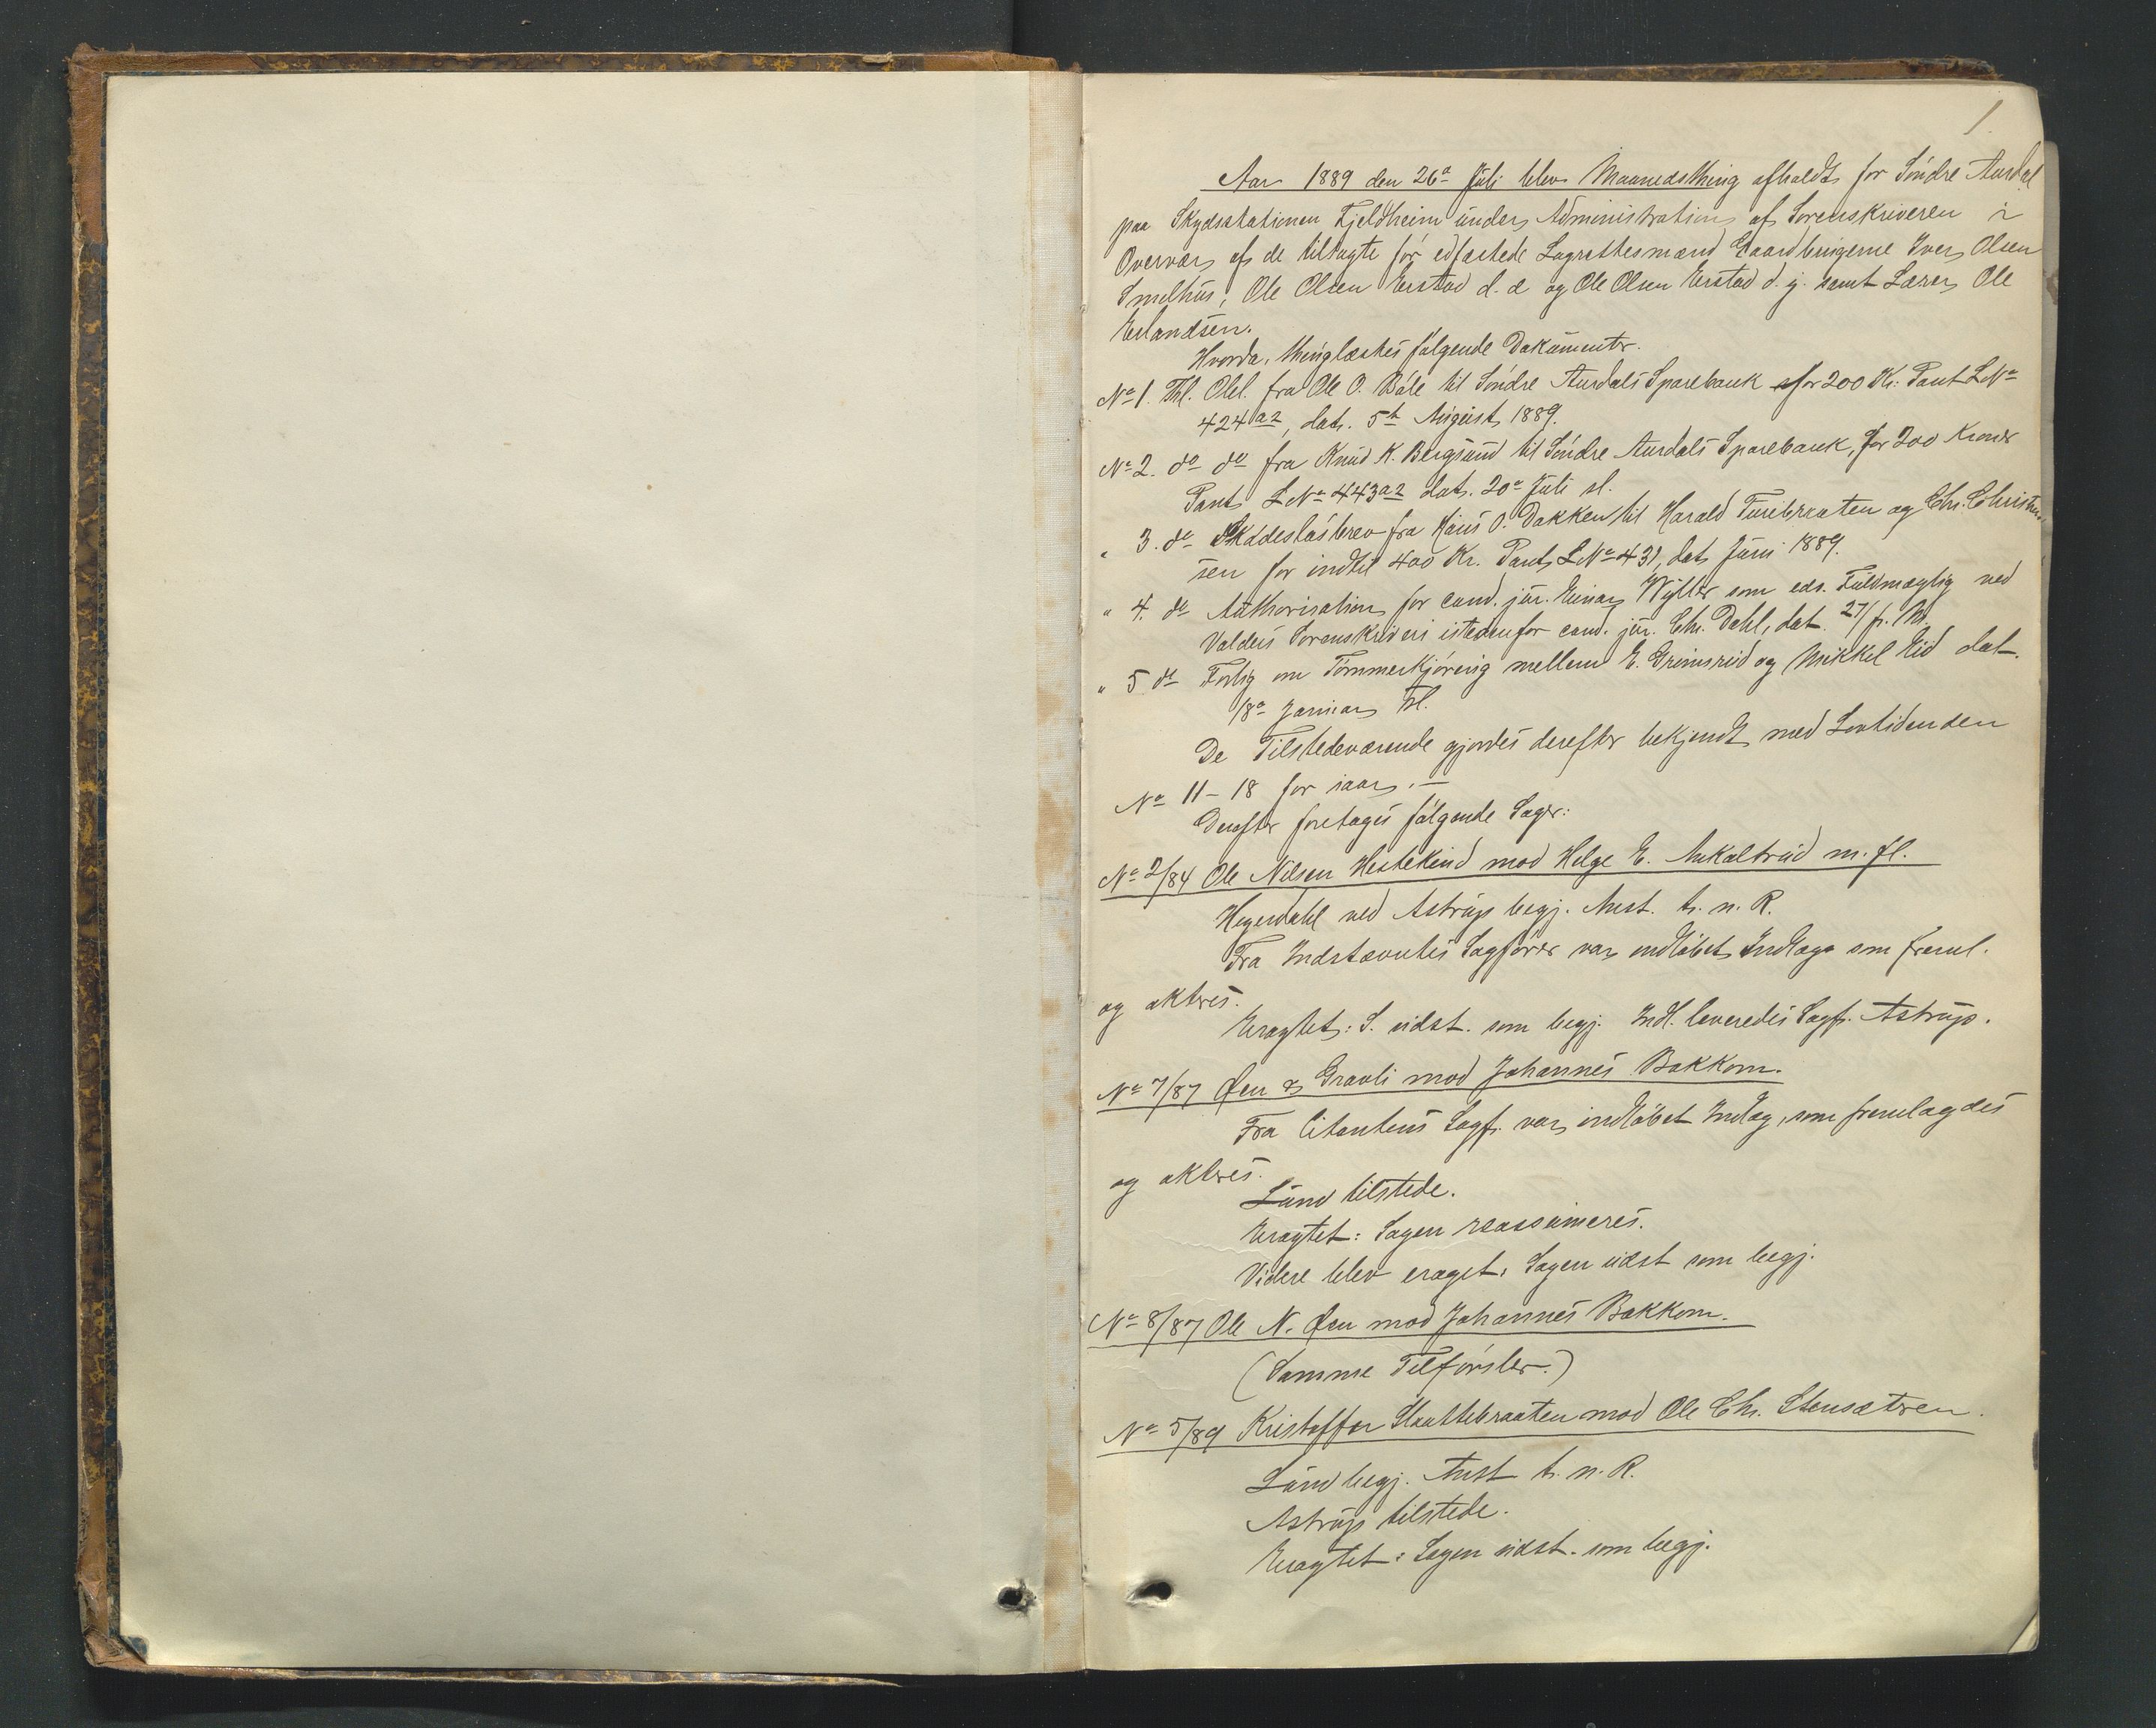 1.
Aar 1889 den 26de Juli blev Maanedsthing afholdt for Søndre Aurdal
paa Skydsstationen Fjeldheim under Administration af Sorenskriveren i
Overvær af de tiltagte før edfæstede Lagrettesmænd Gaardbrugerne Iver Olsen
Smedhus, Ole Olsen Erstad d. æ og Ole Olsen Erstad d. y. samt Lærer Ole
Erlandsen.
Hvorda thinglæstes følgende Dokumenter.
No 1. Thl. Obl. fra Ole O. Bøle til Søndre Aurdals Sparebank for 200 Kr: Pant LNo
424 a2, dat. 5te August 1889.
No 2. do do fra Knud K. Bergsund til Søndre Aurdals Sparebank, for 200 Kroner
Pant LNo 443 a2 dat. 20de Juli sl.
" 3. do Skadesløsbrev fra Hans O. Dokken til Harald Turebraaten og Chr. Christen-
sen for indtil 400 Kr. Pant LNo 431, dat Juni 1889.
" 4. do Authorisation for cand. jur. Einar Wyller som eds. Fuldmægtig ved
Valders Sorenskriveri istedenfor cand. jur. Chr. Dahl, dat. 27/ f. M.
" 5 do Forlig om Tømmerkjøring mellem E. Grimsrud og Mikkel Lid dat.
18de Januar sl.
De Tilstedeværende gjordes derefter bekjendt med Lovtidenden
No 11 - 18 for iaar. -
Derefter foretoges følgende Sager:
No 2/84 Ole Nilsen Hestekind mod Helge E. m. fl.
Heyerdahl ved Astrup begj. Anst. t. n. R.
Fra Indstævntes Sagfører var indløbet Indlæg som freml.
og akteres.
Eragtet: S. udst. som begj. Indl. leveredes Sagf. Astrup.
No 7/87 Øen & Gravli mod Johannes Bakkom.
Fra Citantens Sagf. var indløbet Indlæg, som fremlagdes
og akteres.
Lund tilstede.
Eragtet: Sagen reassumeres.
Videre blev eragtet: Sagen udst som begj.
No 8/87 Ole N. Øen mod Johannes Bakkom.
(Samme Tilførsler.)
No 5/89 Kristoffer Slaattebraaten mod Ole Chr. Stensætren.
Lund begj. Anst t. n. R.
Astrup tilstede.
Eragtet: Sagen udst. som begj.